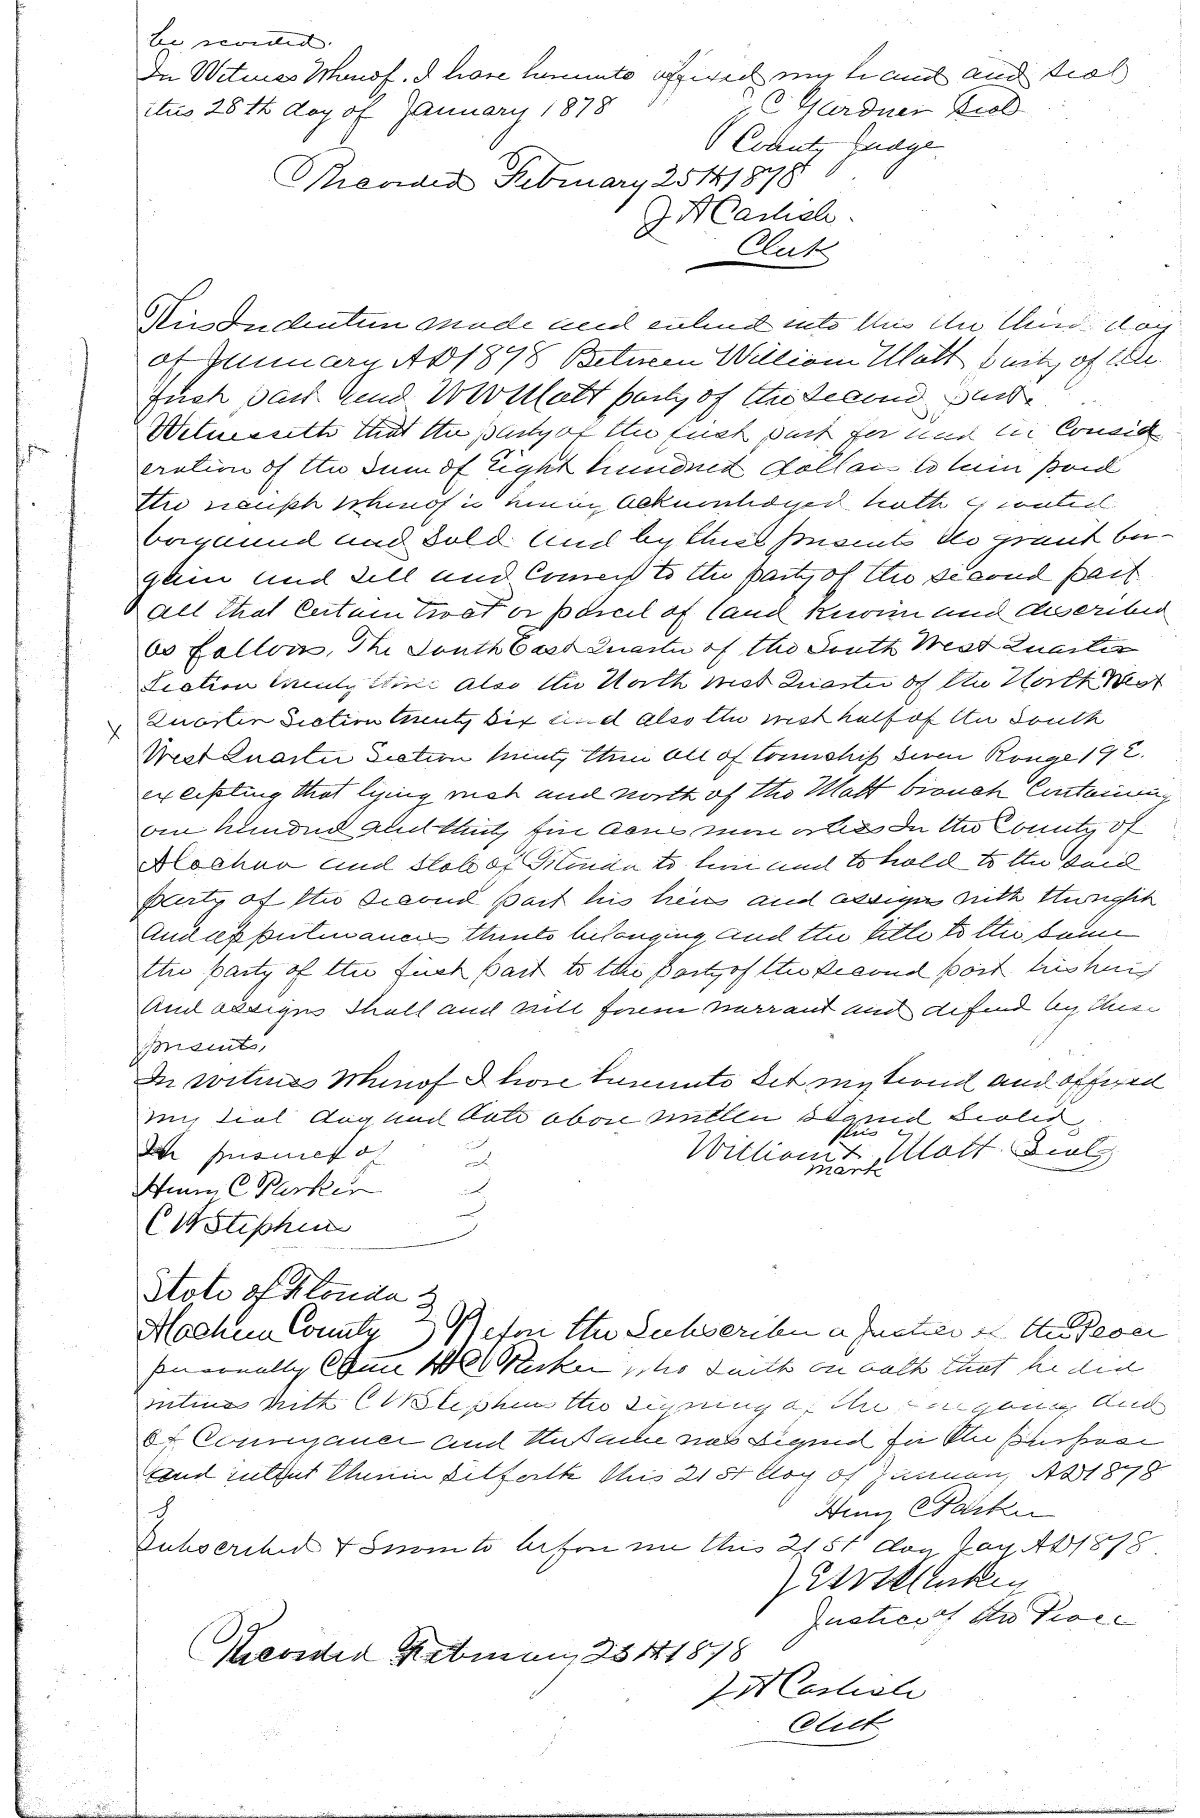 be recorded.
In Witness Whereof. I have hereunto affixed my hand and seal
this 28th day of January 1878 J C Gardner Seal
County Judge
Recorded February 25th 1878
J A Carlisle.
Clerk
This Indenture made and entered into this the third day
of January AD 1878 Between William Matt party of the
first part and W W Matt party of the second part.
Witnesseth that the party of the first part for and in Consid
eration of the sum of Eight hundred dollars to him paid
the receipt whereof is hereby acknowledged hath granted
bargained and sold and by these presents do grant bar-
gain and sell and Convey to the party of the second part
all that Certain tract or parcel of land known and described
as follows, The South East Quarter of the South West Quarter
Section twenty three also the North west Quarter of the North West
X Quarter Section twenty Six and also the west half of the South
West Quarter Section twenty three all of township Seven Range 19 E.
excepting that lying west and north of the Matt branch Containing
one hundred and thirty five acres more or less In the County of
Alachua and State of Florida to him and to hold to the said
party of the second part his heirs and assigns with the right
And appurtenances thereto belonging and the title to the same
the party of the first part to the party of the second part his heirs
And assigns shall and will forever warrant and defend by these
presents,
In witness Whereof I have hereunto Set my hand and affixed
my seal day and date above written Signed Sealed
In presence of William his X mark Matt Seal
Henry C Parker
C W Stephens
State of Florida
Alachua County Before the Subscriber a Justice of the Peace
personally Came H C Parker who saith on oath that he did
witness with C W Stephens the signing of the foregoing deed
of Conveyance and the same was signed for the purpose
and intent therein set forth this 21st day of January AD 1878
Henry C Parker
Subscribed & Sworn to before me this 21st day Jay AD 1878.
Justice of the Peace
Recorded February 25th 1878
J A Carlisle
Clerk